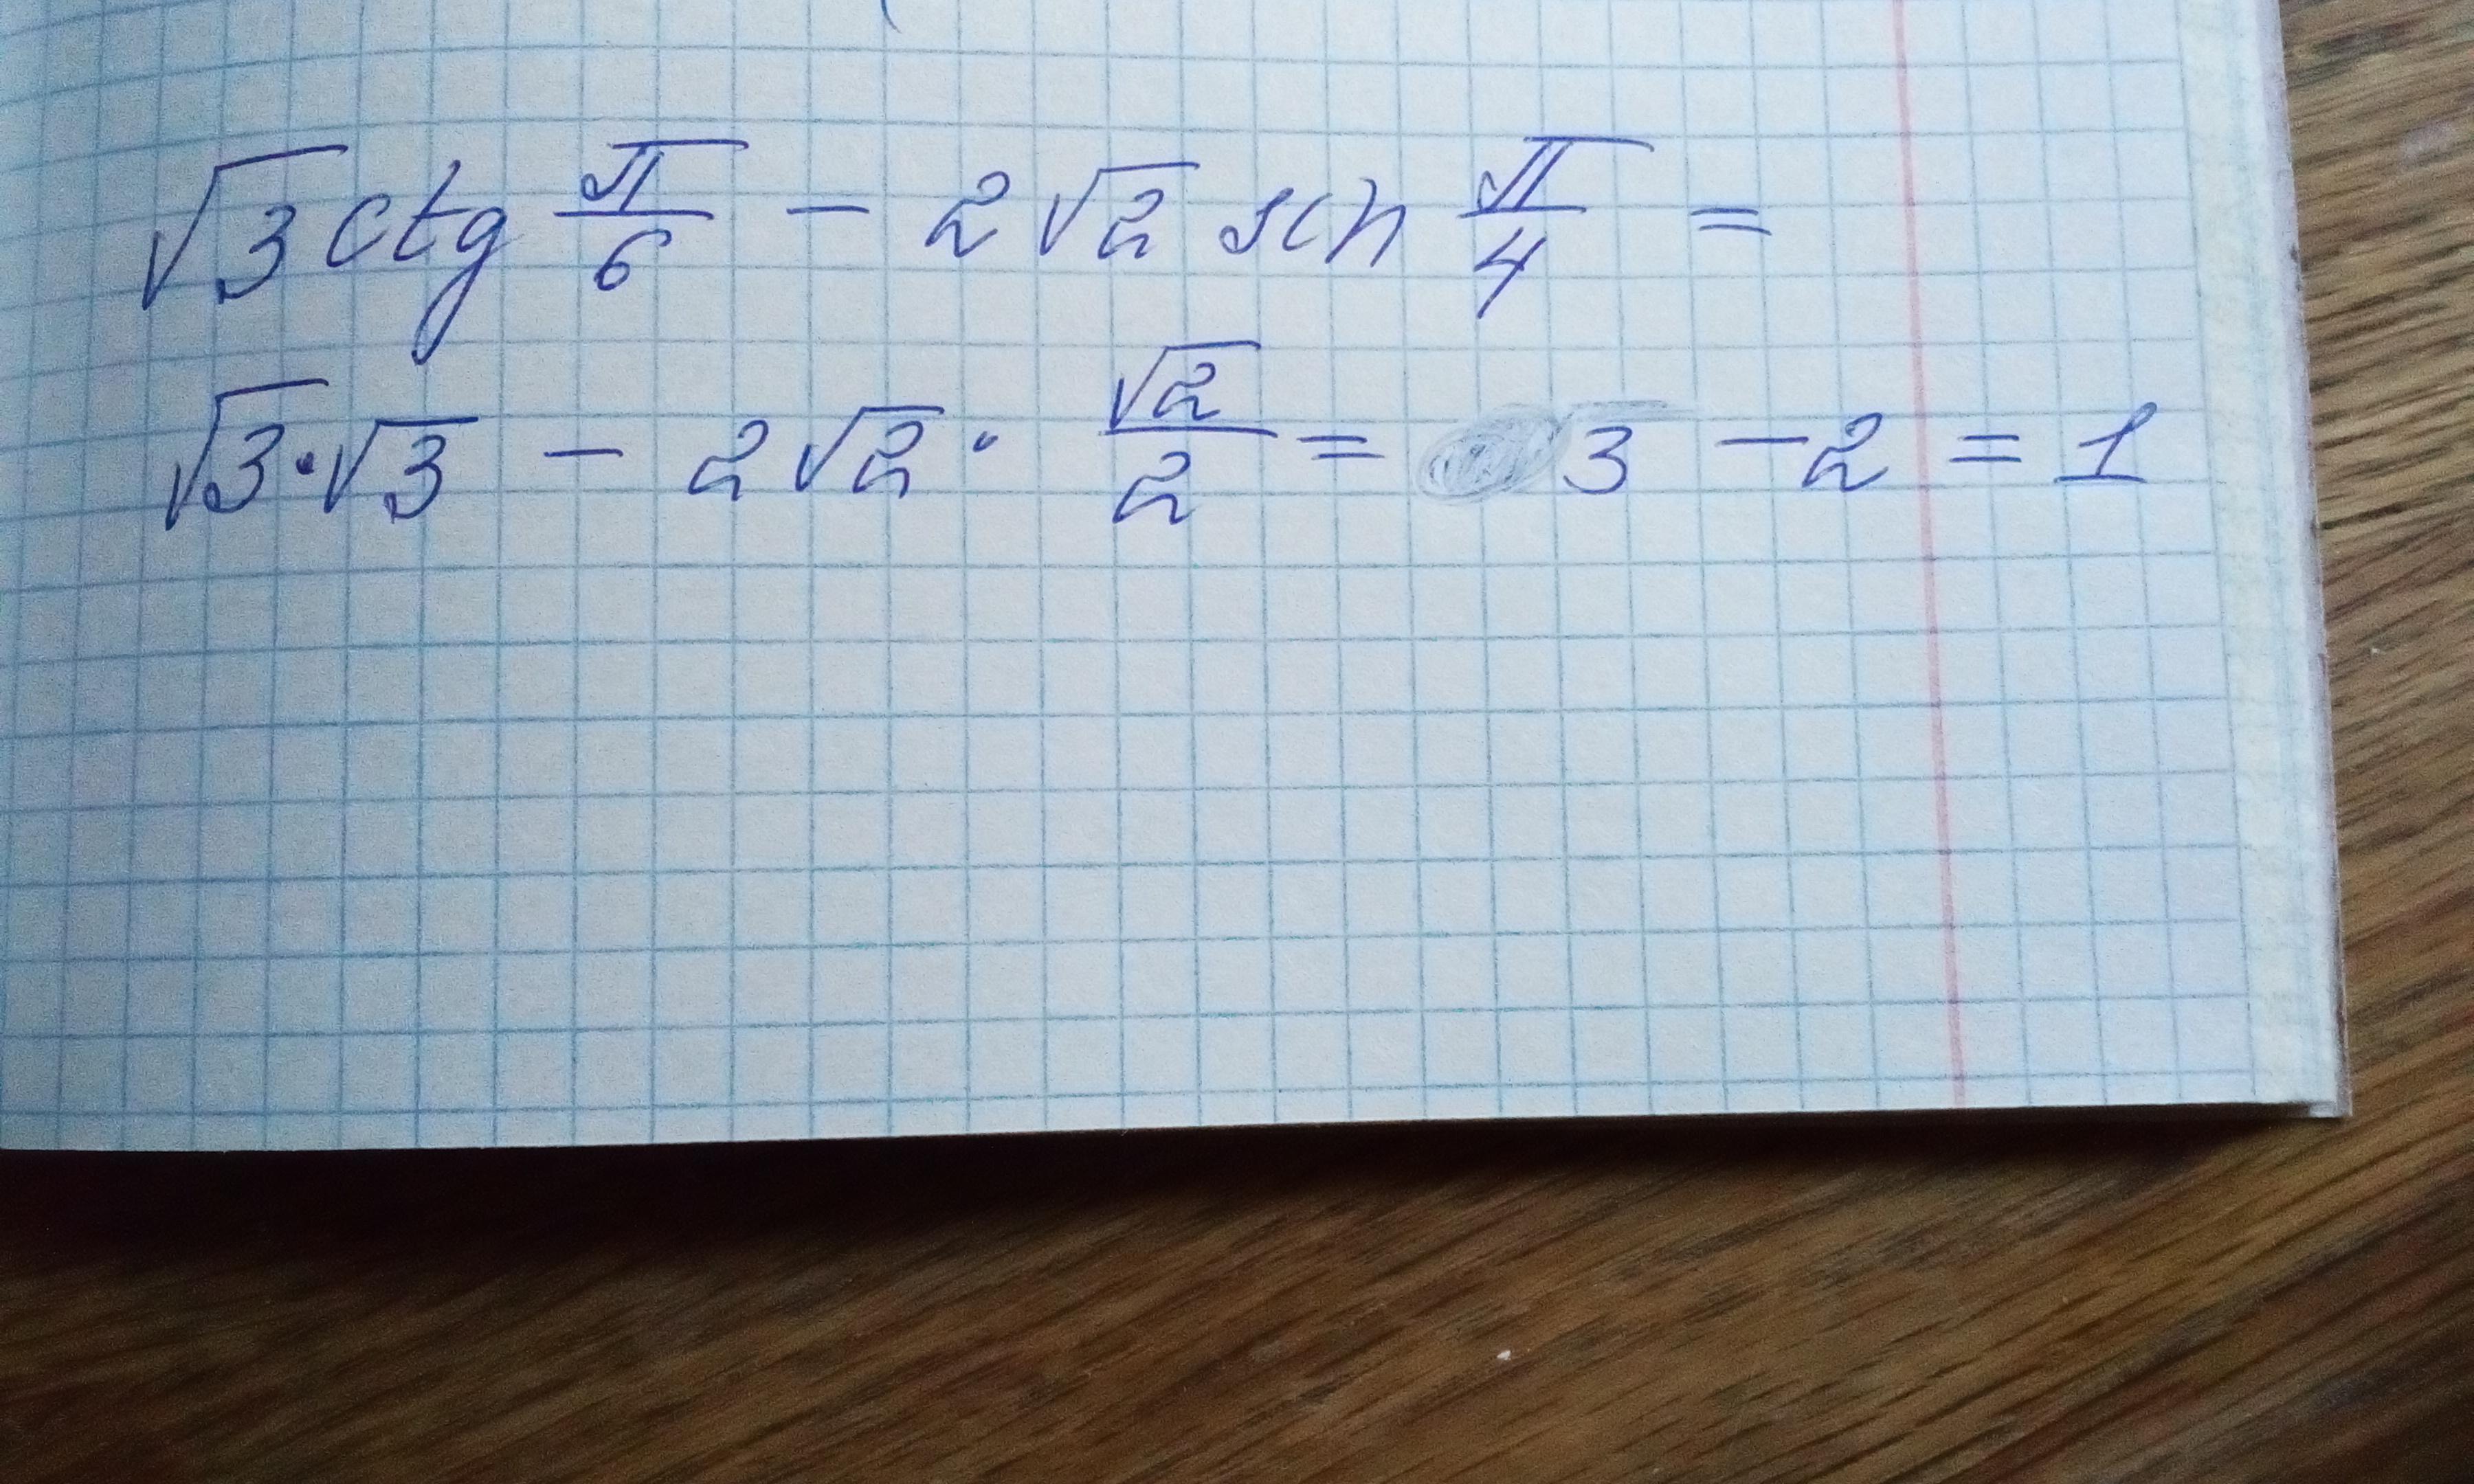 √3 ctg π/6 − 2√2 sin π/4 =
√3·√3 − 2√2 · √2/2 = 3 − 2 = 1